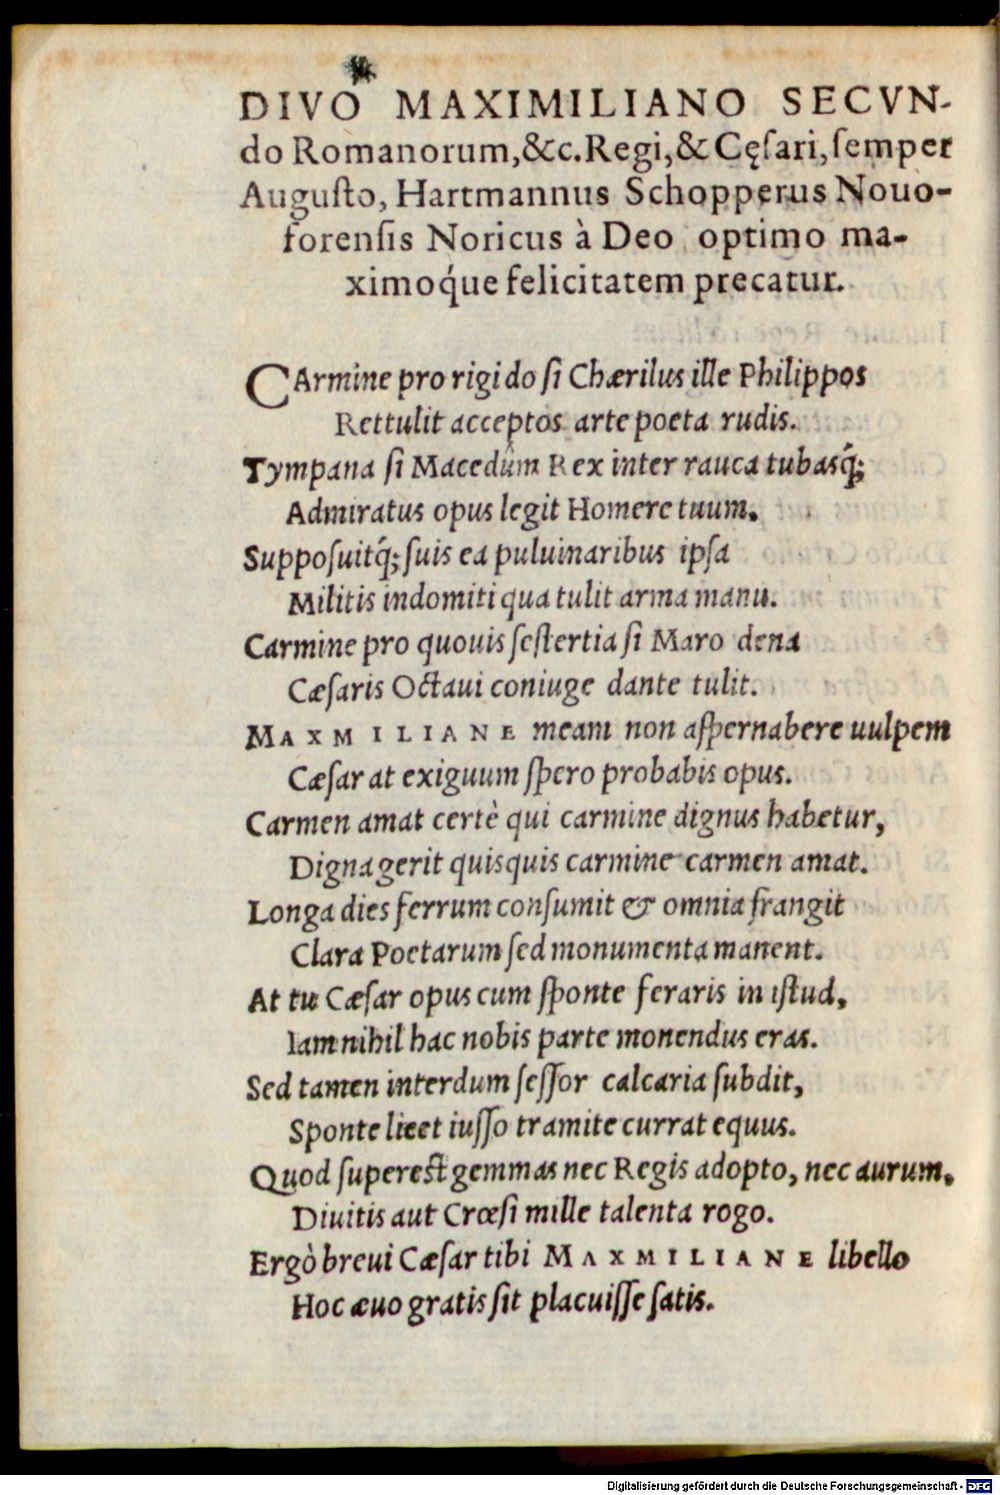 DIVO MAXIMILIANO SECVN-
do Romanorum,&c.Regi,& Cęſari, ſemper
Auguſto, Hartmannus Schopperus Nouo-
forenſis Noricus à Deo optimo ma-
ximoq́ue felicitatem precatur.
CArmine pro rigido ſi Chærilus ille Philippos
Rettulit acceptos arte poeta rudis.
Tympana ſi Macedûm Rex inter rauca tubasq́;
Admiratus opus legit Homere tuum.
Suppoſuitq́; ſuis ea puluinaribus ipſa
Militis indomiti qua tulit arma manu.
Carmine pro quouis ſeſtertia ſi Maro dena
Cæſaris Octaui coniuge dante tulit.
MAXMILIANE meam non aſpernabere uulpem
Cæſar at exiguum ſpero probabis opus.
Carmen amat certè qui carmine dignus habetur,
Digna gerit quisquis carmine carmen amat.
Longa dies ferrum conſumit & omnia frangit
Clara Poetarum ſed monumenta manent.
At tu Cæſar opus cum ſponte feraris in iſtud,
Iam nihil hac nobis parte monendus eras.
Sed tamen interdum ſeſſor calcaria ſubdit,
Sponte licet iuſſo tramite currat equus.
Quod ſupereſt gemmas nec Regis adopto, nec aurum.
Diuitis aut Crœſi mille talenta rogo.
Ergò breui Cæſar tibi MAXMILIANE libello
Hoc æuo gratis ſit placuiſſe ſatis.
Digitalisierung gefördert durch die Deutsche Forschungsgemeinschaft - DFG